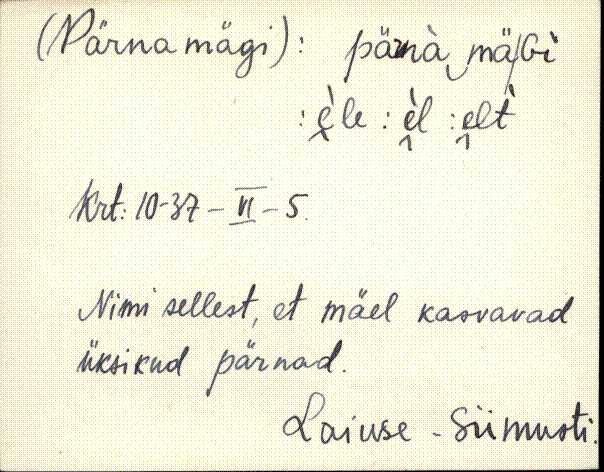 (Pärnamägi): pärnà mä/Gì
: èle : èl : eltˋ
Krt: 10-37-VI-5.
Nimi sellest, et mäel kasvavad
üksikud pärnad.
Laiuse - Siimusti.